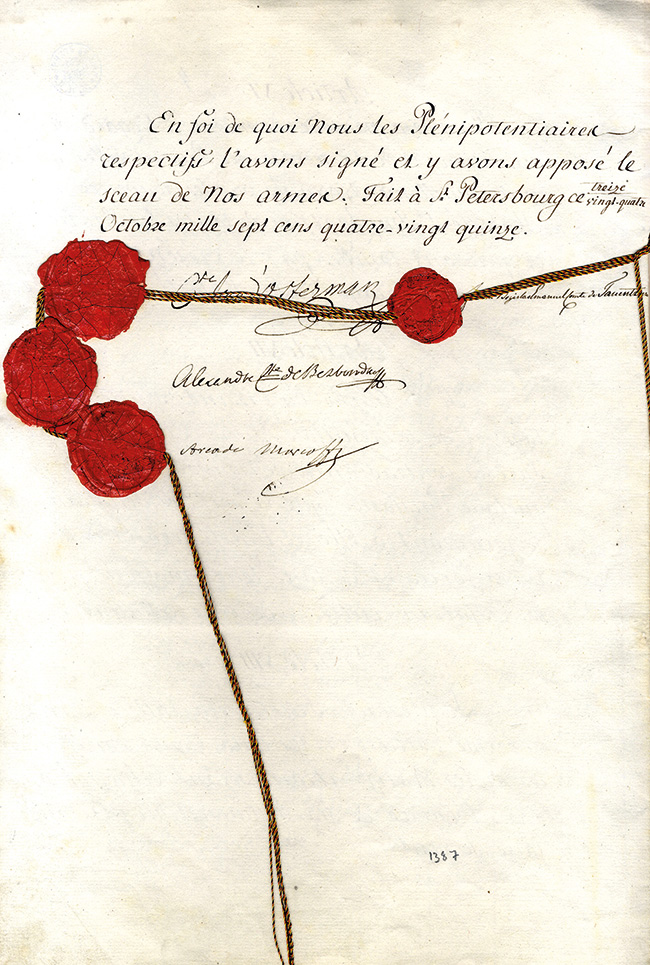 En foi de quoi Nous les Plénipotentiaires
respectifs l'avons signé et y avons apposé le
sceau de Nos armes. Fait à St. Petersbourg ce treize
vingt-quatre
Octobre mille sept cens quatre-vingt quinze.
d'Osterman
Tauentzien
Alexandre Cte de Besborodko
Arcadi Morcoff
1387